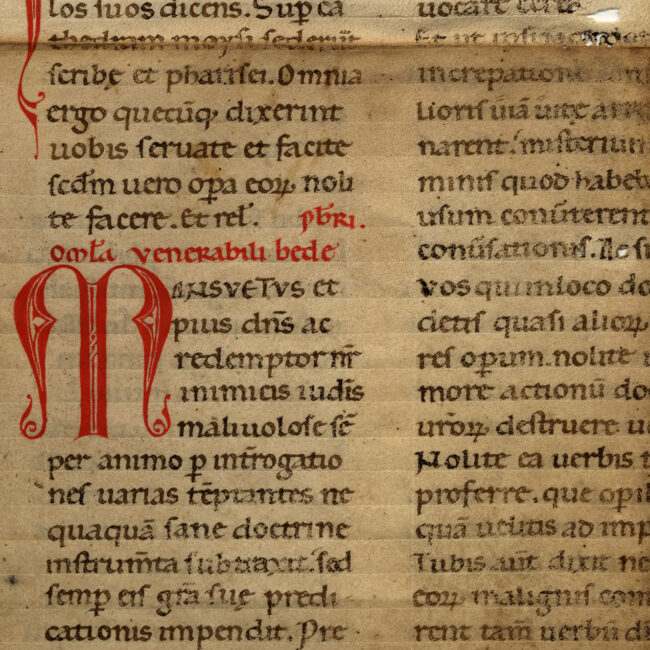 los suos dicens. Sup ca
thedram moysi sederūt
scribę et pharisei. Omnia
ergo quecūq; dixerint
uobis seruate et facite
scd̄m uero op̄a eoꝝ noli
te facere. Et rel̄. pb̄ri.
oml̄a venerabili bede
MANSVETVS et
pius dn̄s ac
redemptor nr̄
inimicis iudīs
maliuolose sē
per animo ꝑ int̄rogatio
nes uarias tēptantes ne
quaquā sane doctrine
instrum̄ta subtraxit. sed
semꝑ eis grā suę predi
cationis impendit. Pre
uocare
Et ut
increpatione
lioris uiā uitę
narent. misterium
minis quod habeb
usum conūterent
conūsationis. Ac si
vos qui in loco do
cietis quasi alioꝝ
res operum. nolite
more actionū do
uroꝝ destruere ue
Nolite ea uerbis
proferre. que op
quā uelitis ad imp
Iubis aūt dixit ne
eoꝝ malignis com
rent tam̄ uerbū di